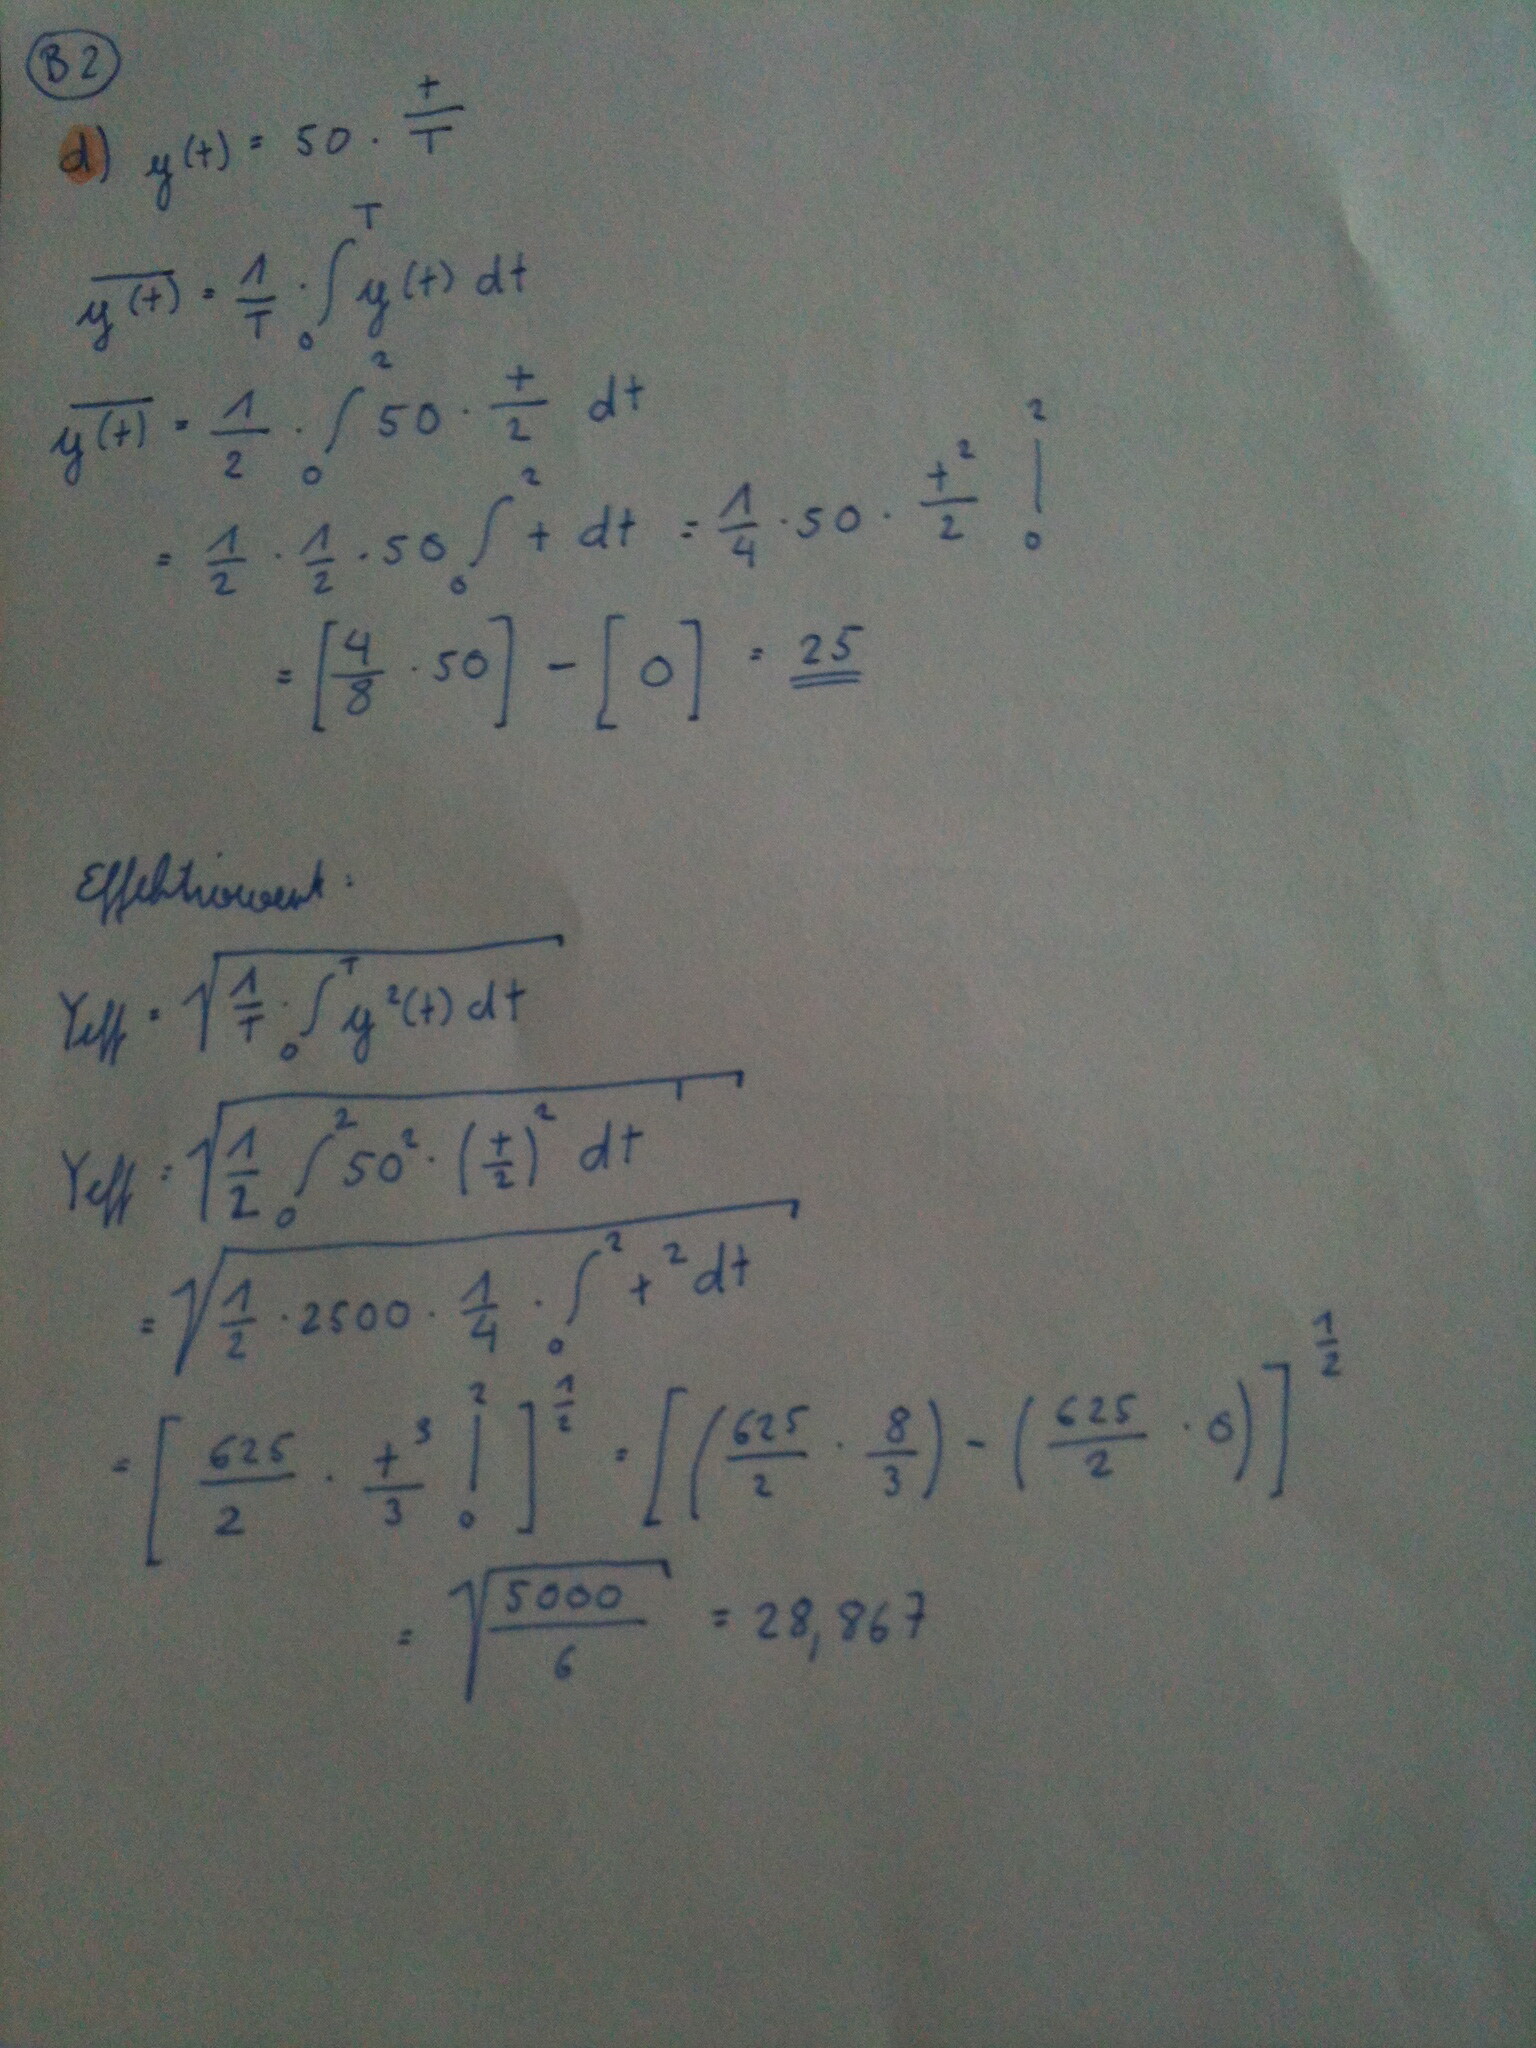 B2
d) y(t) = 50 · t/T
y(t) = 1/T · ∫₀ᵀ y(t) dt
y(t) = 1/2 · ∫₀² 50 · t/2 dt
= 1/2 · 1/2 · 50 ∫₀² t dt = 1/4 · 50 · t²/2 |₀²
= [4/8 · 50] - [0] = 25
Effektivwert:
Yeff = √(1/T · ∫₀ᵀ y²(t) dt)
Yeff = √(1/2 ∫₀² 50² · (t/2)² dt)
= √(1/2 · 2500 · 1/4 · ∫₀² t² dt)
= [625/2 · t³/3 |₀²]^1/2 = [(625/2 · 8/3) - (625/2 · 0)]^1/2
= √(5000/6) = 28,867